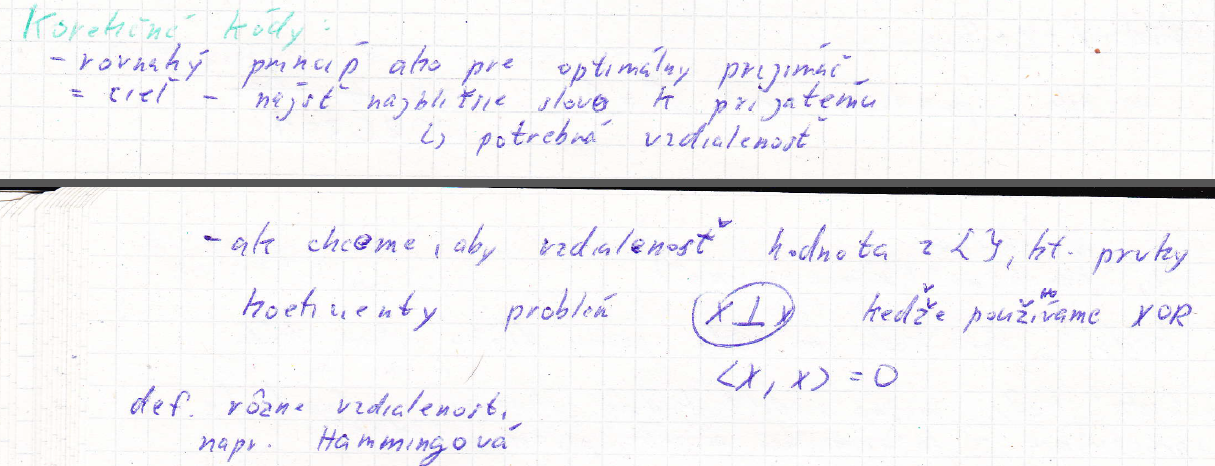 Korekčné kódy:
- rovnaký princíp ako pre optimálny prijímač
= cieľ - nájsť najbližšie slovo k prijatému
↳ potrebná vzdialenosť
- ak chceme, aby vzdialenosť hodnota z { }, kt. prvky
koeficienty problém X⊥X keďže používame XOR
<X, X> = 0
def. rôzne vzdialenosti,
napr. Hammingová